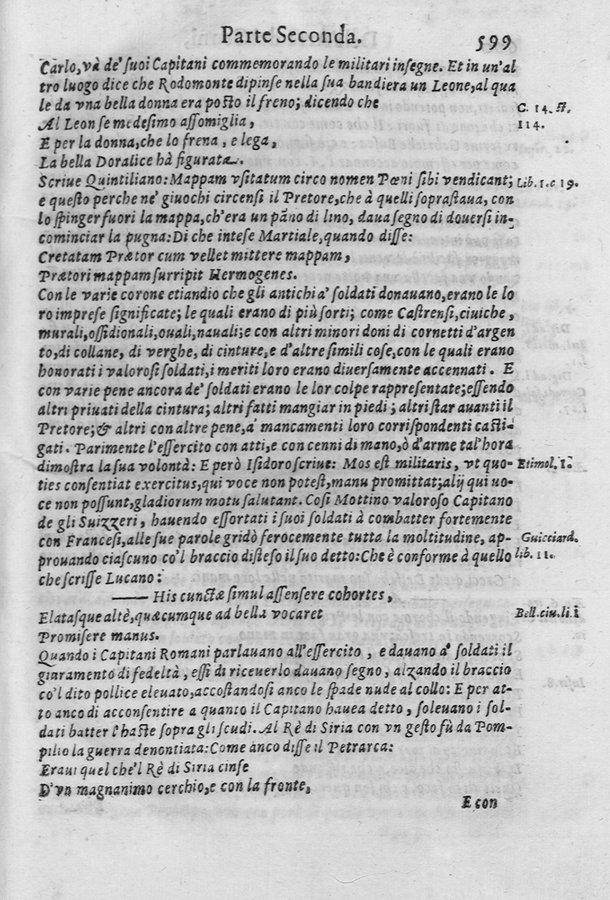 Parte Seconda. 599
Carlo, và de' suoi Capitani commemorando le militari insegne. Et in un'al
tro luogo dice che Rodomonte dipinse nella sua bandiera un Leone, al qua
le da vna bella donna era posto il freno; dicendo che
C. 14. st.
114.
Al Leon se medesimo assomiglia,
E per la donna, che lo frena, e lega,
La bella Doralice hà figurata.
Scriue Quintiliano: Mappam vsitatum circo nomen Pœni sibi vendicant;
Lib. 1. c 19.
e questo perche ne' giuochi circensi il Pretore, che à quelli soprastaua, con
lo spinger fuori la mappa, ch'era un pãno di lino, daua segno di douersi in-
cominciar la pugna: Di che intese Martiale, quando disse:
Cretatam Prætor cum vellet mittere mappam,
Prætori mappam surripit Hermogenes.
Con le varie corone etiandio che gli antichi a' soldati donauano, erano le lo
ro imprese significate; le quali erano di più sorti; come Castrensi, ciuiche,
murali, ossidionali, ouali, nauali; e con altri minori doni di cornetti d'argen
to, di collane, di verghe, di cinture, e d'altre simili cose, con le quali erano
honorati i valorosi soldati, i meriti loro erano diuersamente accennati. E
con varie pene ancora de' soldati erano le lor colpe rappresentate; essendo
altri priuati della cintura; altri fatti mangiar in piedi; altri star auanti il
Pretore; & altri con altre pene, a' mancamenti loro corrispondenti casti-
gati. Parimente l'essercito con atti, e con cenni di mano, ò d'arme tal'hora
dimostra la sua volontà: E però Isidoro scriue: Mos est militaris, vt quo-
Etimol. 1.
ties consentiat exercitus, qui voce non potest, manu promittat; alij qui uo-
ce non possunt, gladiorum motu salutant. Così Mottino valoroso Capitano
de gli Suizzeri, hauendo essortati i suoi soldati à combatter fortemente
con Francesi, alle sue parole gridò ferocemente tutta la moltitudine, ap-
Guicciard.
prouando ciascuno co'l braccio disteso il suo detto: Che è conforme à quello
lib. 11.
che scrisse Lucano:
—— His cunctæ simul assensere cohortes,
Elatasque altè, quæcumque ad bella vocaret
Bell. ciu. li. 1
Promisere manus.
Quando i Capitani Romani parlauano all'essercito, e dauano a' soldati il
giuramento di fedeltà, essi di riceuerlo dauano segno, alzando il braccio
co'l dito pollice eleuato, accostandosi anco le spade nude al collo: E per at-
to anco di acconsentire a quanto il Capitano hauea detto, soleuano i sol-
dati batter l'haste sopra gli scudi. Al Rè di Siria con vn gesto fù da Pom-
pilio la guerra denontiata: Come anco disse il Petrarca:
Eraui quel che'l Rè di Siria cinse
D'vn magnanimo cerchio, e con la fronte,
E con